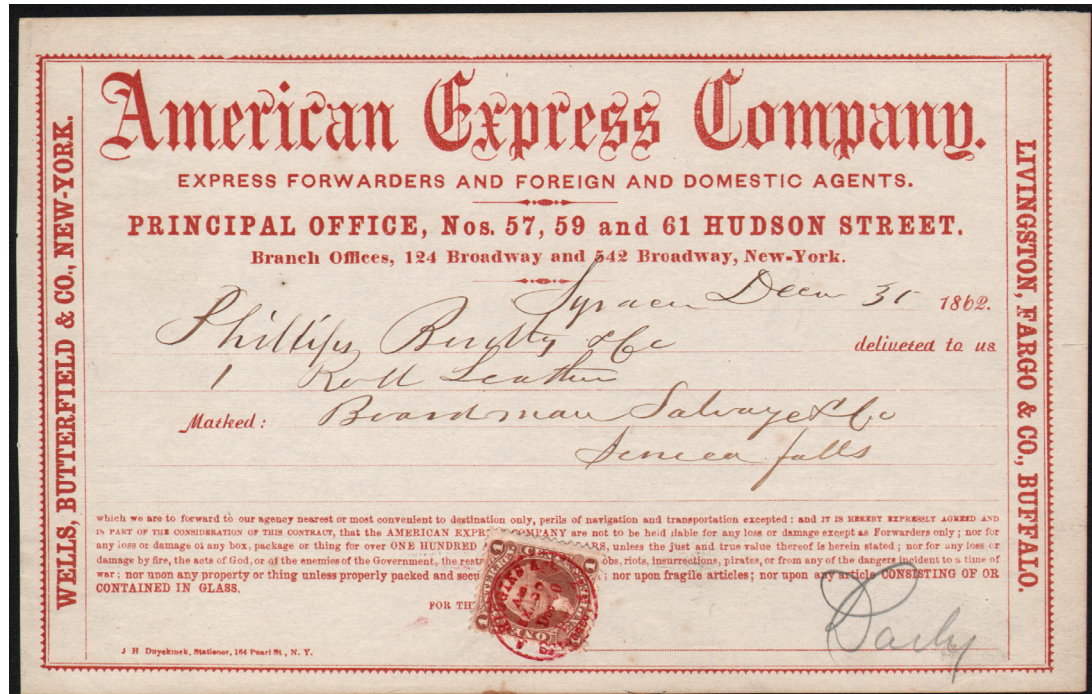 American Express Company.
EXPRESS FORWARDERS AND FOREIGN AND DOMESTIC AGENTS.
PRINCIPAL OFFICE, Nos. 57, 59 and 61 HUDSON STREET.
Branch Offices, 124 Broadway and 542 Broadway, New-York.
Decr 31 1862.
Phillips & Co delivered to us
1 Roll Leather
Marked: Boardman Salvage & Co
Seneca falls
which we are to forward to our agency nearest or most convenient to destination only, perils of navigation and transportation excepted: and IT IS HEREBY EXPRESSLY AGREED AND
IS PART OF THE CONSIDERATION OF THIS CONTRACT, that the AMERICAN EXPR COMPANY are not to be held liable for any loss or damage except as Forwarders only; nor for
any loss or damage of any box, package or thing for over ONE HUNDRED RS, unless the just and true value thereof is herein stated; nor for any loss or
damage by fire, the acts of God, or of the enemies of the Government, the rest obs, riots, insurrections, pirates, or from any of the dangers incident to a time of
war; nor upon any property or thing unless properly packed and secu ; nor upon fragile articles; nor upon any article CONSISTING OF OR
CONTAINED IN GLASS.
FOR TH
J H Duyckinck, Stationer, 164 Pearl St, N. Y.
WELLS, BUTTERFIELD & CO., NEW-YORK.
LIVINGSTON, FARGO & CO., BUFFALO.